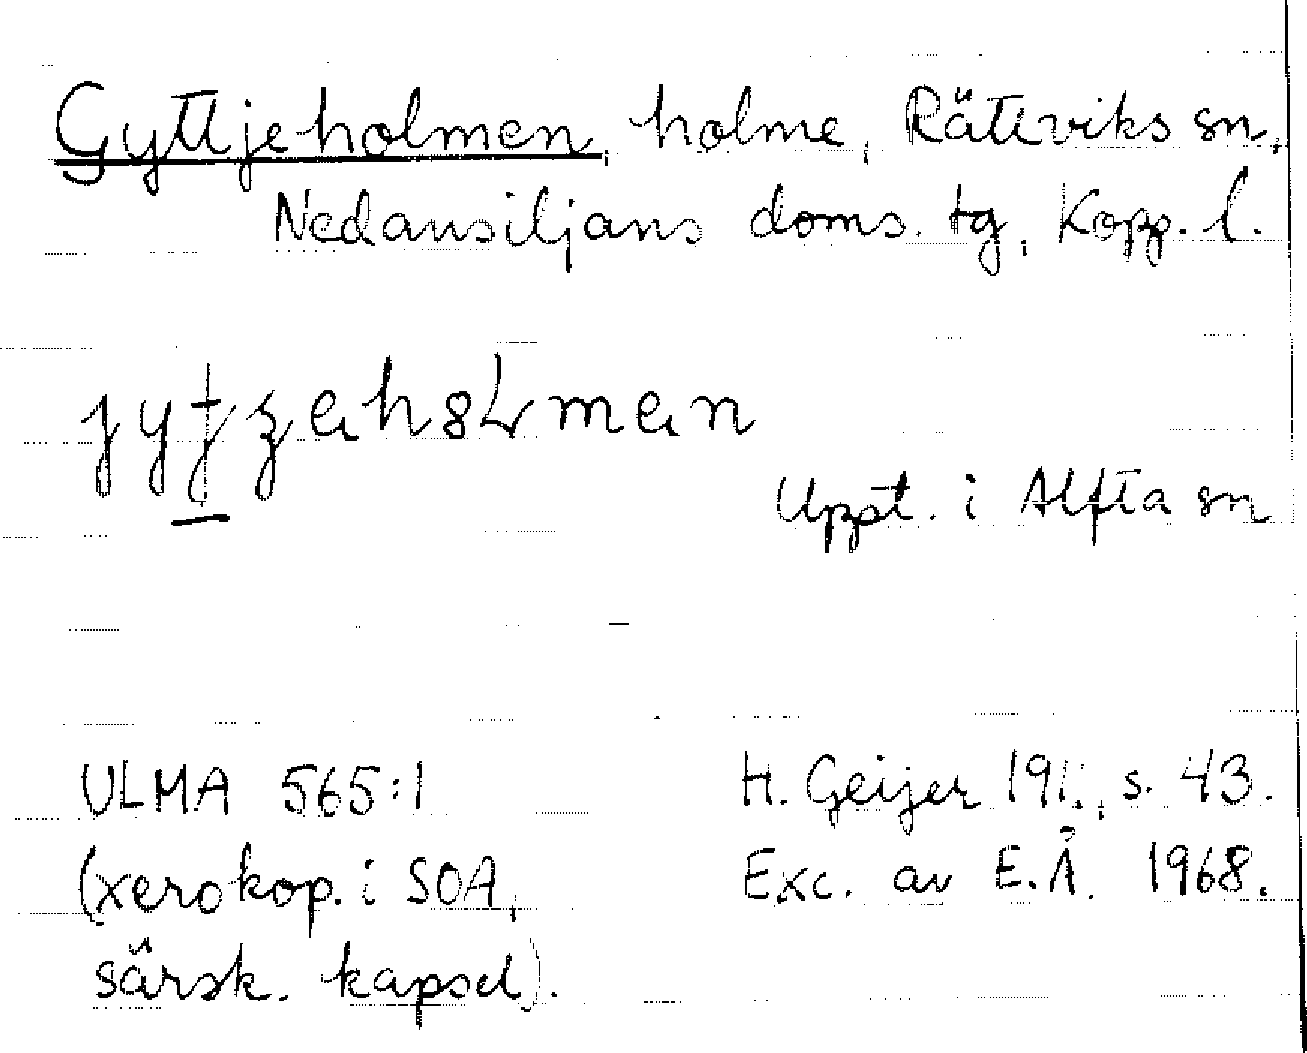 Gyttjeholmen, holme, Rättviks sn,
Nedansiljans doms. tg, Kopp. l.
Uppt. i Alfta sn
ULMA 565:1
H. Geijer s. 43.
(xerokop. i SOA,
Exc. av E.Å. 1968.
särsk. kapsel).